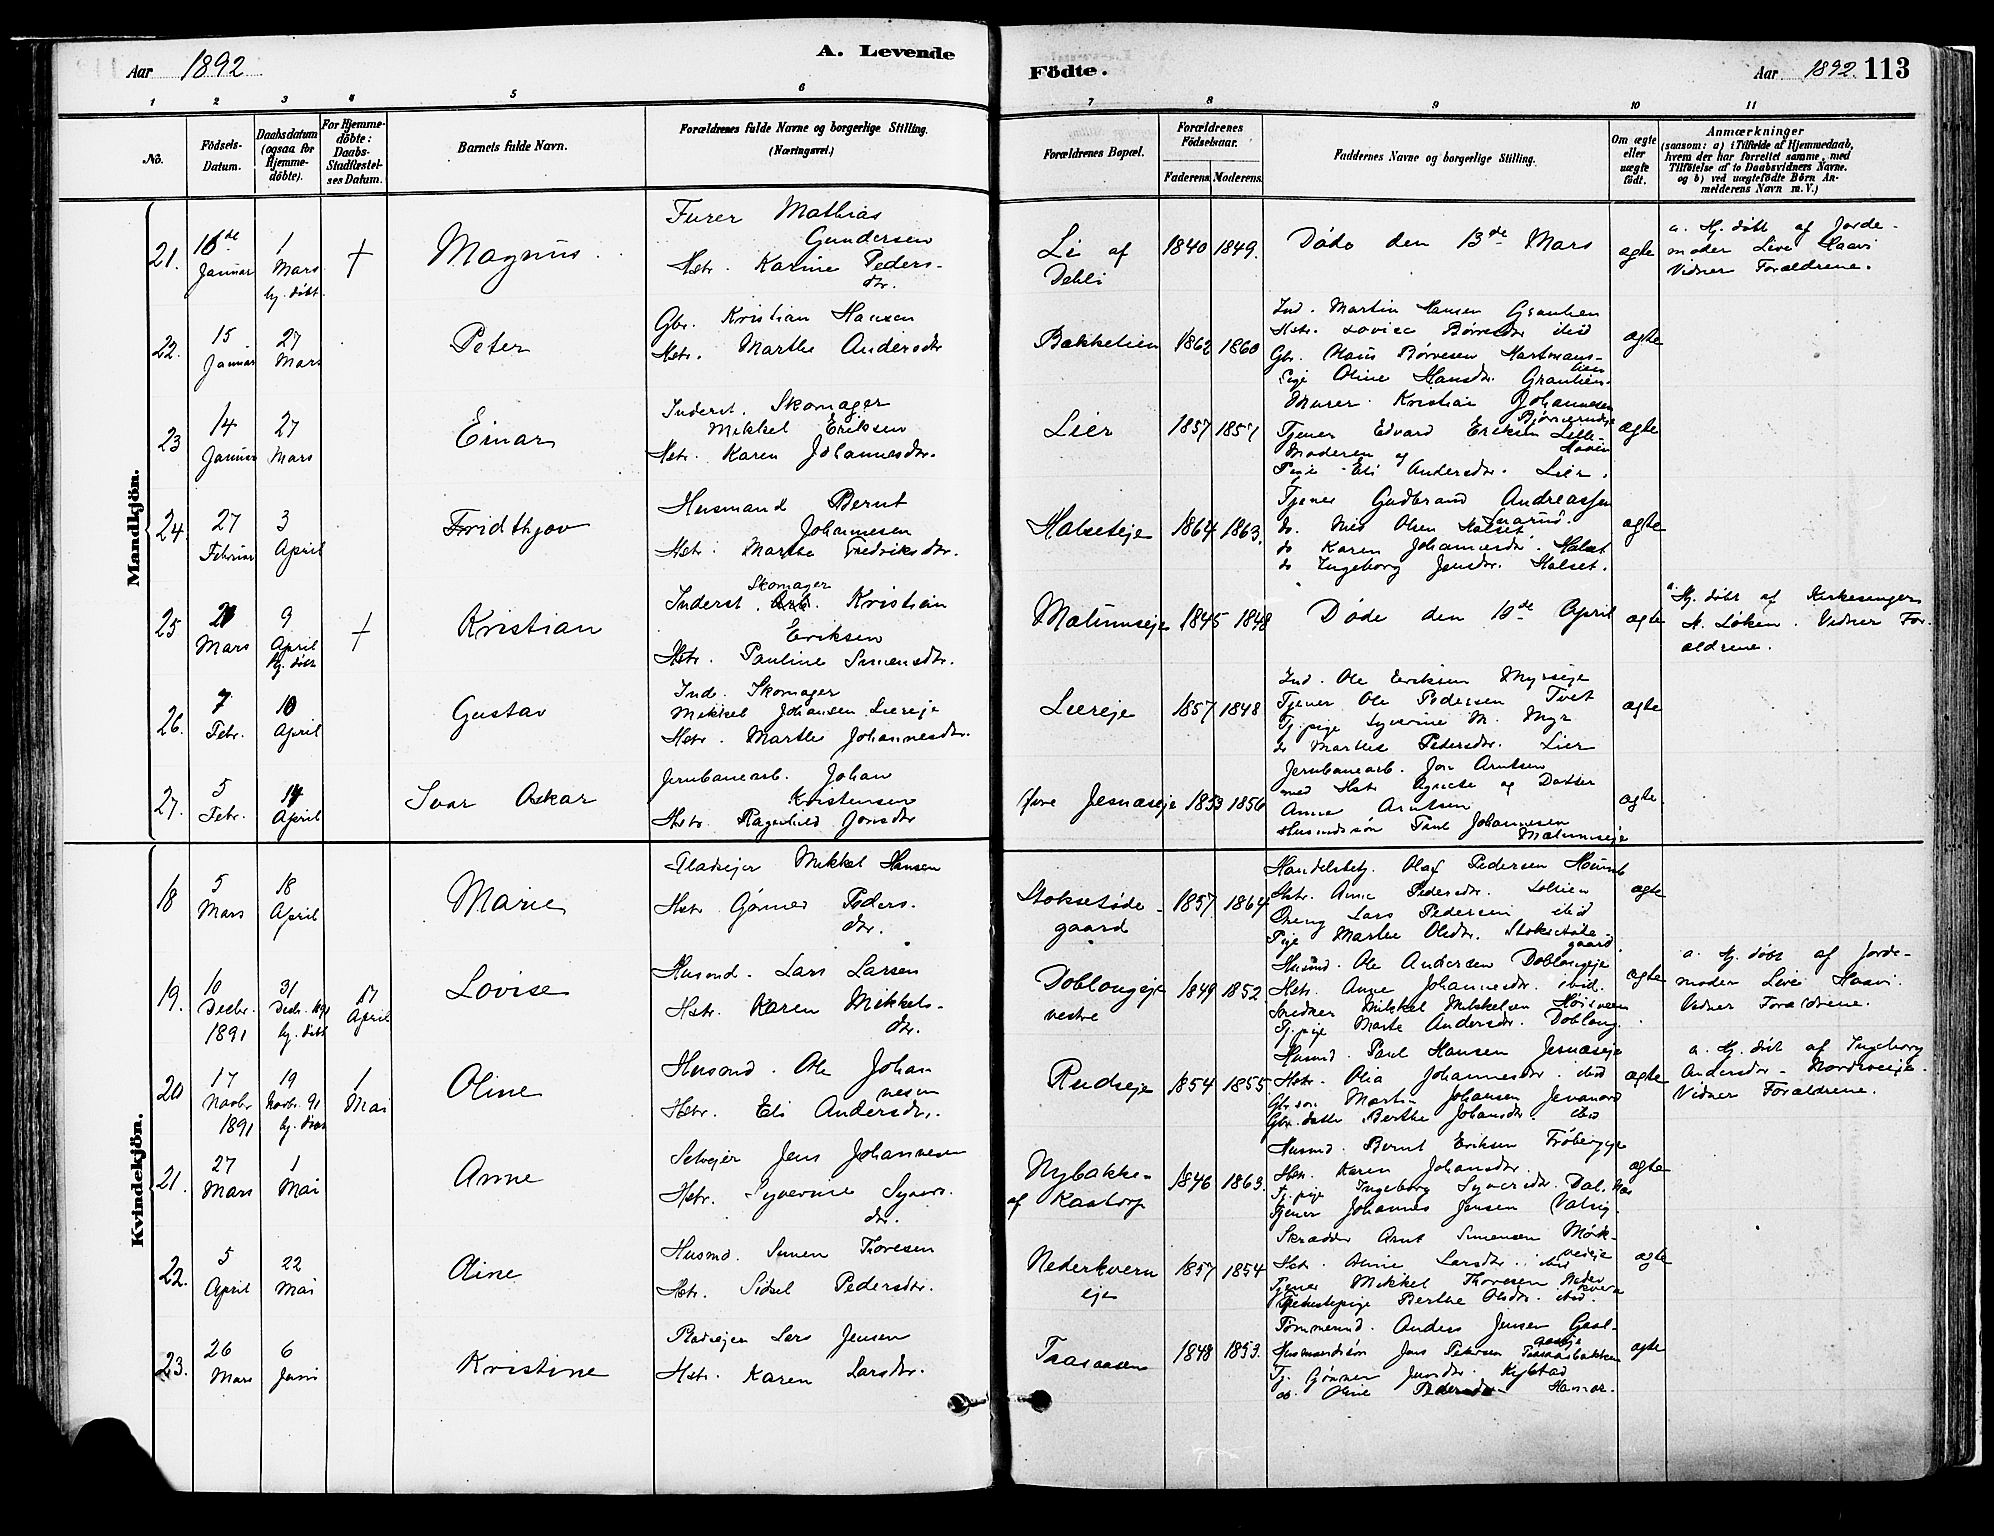 Aar 1892
A. Levende
Födte.
Aar 1892. 113
1 2 3 4 5 6 7 8 9 10 11
No.
Födsels-Datum.
Daabsdatum (ogsaa for Hjemme-döbte).
For Hjemme-döbte: Daabs-Stadfæstel-ses Datum.
Barnets fulde Navn.
Forældrenes fulde Navne og borgerlige Stilling. (Næringsvei.)
Forældrenes Bopæl.
Forældrenes Födselsaar.
Faderens. Moderens.
Faddernes Navne og borgerlige Stilling.
Om ægte eller uægte födt.
Anmærkninger
(saasom: a) i Tilfælde af Hjemmedaab, hvem der har forrettet samme, med Tilföielse af to Daabsvidners Navne. og b) ved uægtefödte Börn Anmelderens Navn m. V.)
Mandkjön.
21. 16de Januar
1 Mars hj. döbt
+
Magnus
Furer Mathias
Gundersen
Hstr. Karine Peders-
dtr.
Li af
Dehli
1840 1849.
Døde den 13de Mars
ægte
a. Hj. döbt af Jorde-
moder Live Haavi
Vidner Forældrene.
22. 15 Januar
27 Mars
Peter
Gbr. Kristian Hansen
Hstr. Marthe Andersdtr
Bakkelien
1862 1860
Ind. Martin Hansen Granlien
Hstr. Lovise Børresdtr ibid
Gbr. Hans Børvesen Hartmans-
lien
Pige Oline Hansdtr. Granlien.
ægte
23 14 Januar
27 Mars
Einar
Inderst. Skomager
Mikkel Eriksen
Hstr. Karen Johannesdtr.
Lier
1857 1851
Murer Kristian Johannesen
Tjener Edvard Eriksen Lille-
Moderen og
Pige Eli Andersdtr. Lier.
ægte
24. 27 Februar
3 April
Fridthjov
Husmand Bernt
Johannesen
Hstr. Marthe Fredriksdtr.
Halseteje
1864 1863.
Tjener Gudbrand Andreassen
do. Nils Olsen Halset
do Karen Johannesdtr. Halset
do Ingeborg Jensdtr. Halset.
ægte
25 Mars
9 April Hj. döbt
+
Kristian
Skomager
Inderst. Kristian
Eriksen
Hstr. Pauline Simensdtr.
Mælumseje
1845 1848
Døde den 10de April
ægte
a. Hj. döbt af Kirkesanger
N. Løken. Vidner For-
ældrene.
26. 7 Febr.
10 April
Gustav
Ind. Skomager
Mikkel Johansen Liereje
Hstr. Marthe Johannesdtr.
Liereje
1857 1848
Ind. Ole Eriksen Myrseje
Tjener Ole Pedersen Tvet
Tj.pige Syverine M. Myr
do Marthe Pedersdtr. Lier
ægte
27. 5 Febr.
April
Ivar Oskar
Jernbanearb. Johan
Kristensen
Hstr. Ragnhild Jonsdtr
Jesnæseje
1853 1856
Jernbanearb. Jon Arntsen
med Hstr Agnete og Datter
Anne Arntsen
Husmandssön Paul Johannesen
Mælumseje
ægte.
Kvindekjön.
18 5 Mars
18 April
Marie
Pladsejer Mikkel Hansen
Hstr. Gønner Peders-
dtr.
Stoksetøde-
gaard
1857 1864
Handelsbetj. Olaf Pedersen
Hstr. Anne Pedersdtr.
Dreng Lars Pedersen ibid
Pige Marthe Olsdtr. Stoksetøde-
gaard.
ægte
19. 10 Decbr. 1891
31 Decbr. 1891 hj. döbt
17 April
Lovise
Husmd. Lars Larsen
Hstr. Karen Mikkels-
dtr.
Doblougeje
vestre
1849 1852
Husmd. Ole Andersen Doblougeje
Hstr. Anne Johannesdtr. ibid.
Snedker Mikkel Mikkelsen Høisveen
Tj.pige Marte Andersdtr. Dobloug.
ægte
a. Hj. döbt af Jorde-
moder Live Haavi.
Vidner Forældrene.
20 17 Novbr. 1891
19 Novbr. 91 hj. döbt
1 Mai
Oline
Husmd. Ole Johan
nesen
Hstr. Eli Andersdtr.
Rudseje
1854 1855.
Husmd. Paul Hansen Jesnæseje
Hstr. Olia Johannesdtr. ibid
Gbr. søn Martin Johansen Jevanord
Gbr. datter Berthe Johansdtr. ibid
ægte
a. Hj. döbt af Ingeborg
Andersdtr. Nordsveeje.
Vidner Forældrene.
21. 27 Mars
1 Mai
Anne
Selvejer Jens Johannesen
Hstr. Syverine Syvers.
dtr.
Nybakke-
af Kastorp
1846 1863.
Husmd. Bernt Eriksen Frøbergeje
Hstr. Karen Johansdtr.
Tj.pige Ingeborg Syversdtr. Dal. Næs
Tjener Johannes Jensen
ægte
22. 5 April
22 Mai
Oline
Husmd. Simen Thoresen
Hstr. Sidsel Pedersdtr.
Nederkvern
eje
1857 1854
Skrædder Arnt Simensen Mørk-
veeje
Hstr. Oline Larsdtr. ibid
Tjener Mikkel Thoresen Neder
kvern
Tjenestepige Berthe Olsdtr. ibid.
ægte
23. 26 Mars
6 Juni
Kristine
Pladsejer Lars Jensen
Hstr. Karen Larsdtr.
Taasaasen
1848 1853.
Tømmermd. Anders Jensen Gaal-
aaseje
Husmandssön Jens Petersen Taasaasbakken
Tj. Gønner Jensdtr. Kylstad
do. Oline Pedersdtr Hamar.
ægte